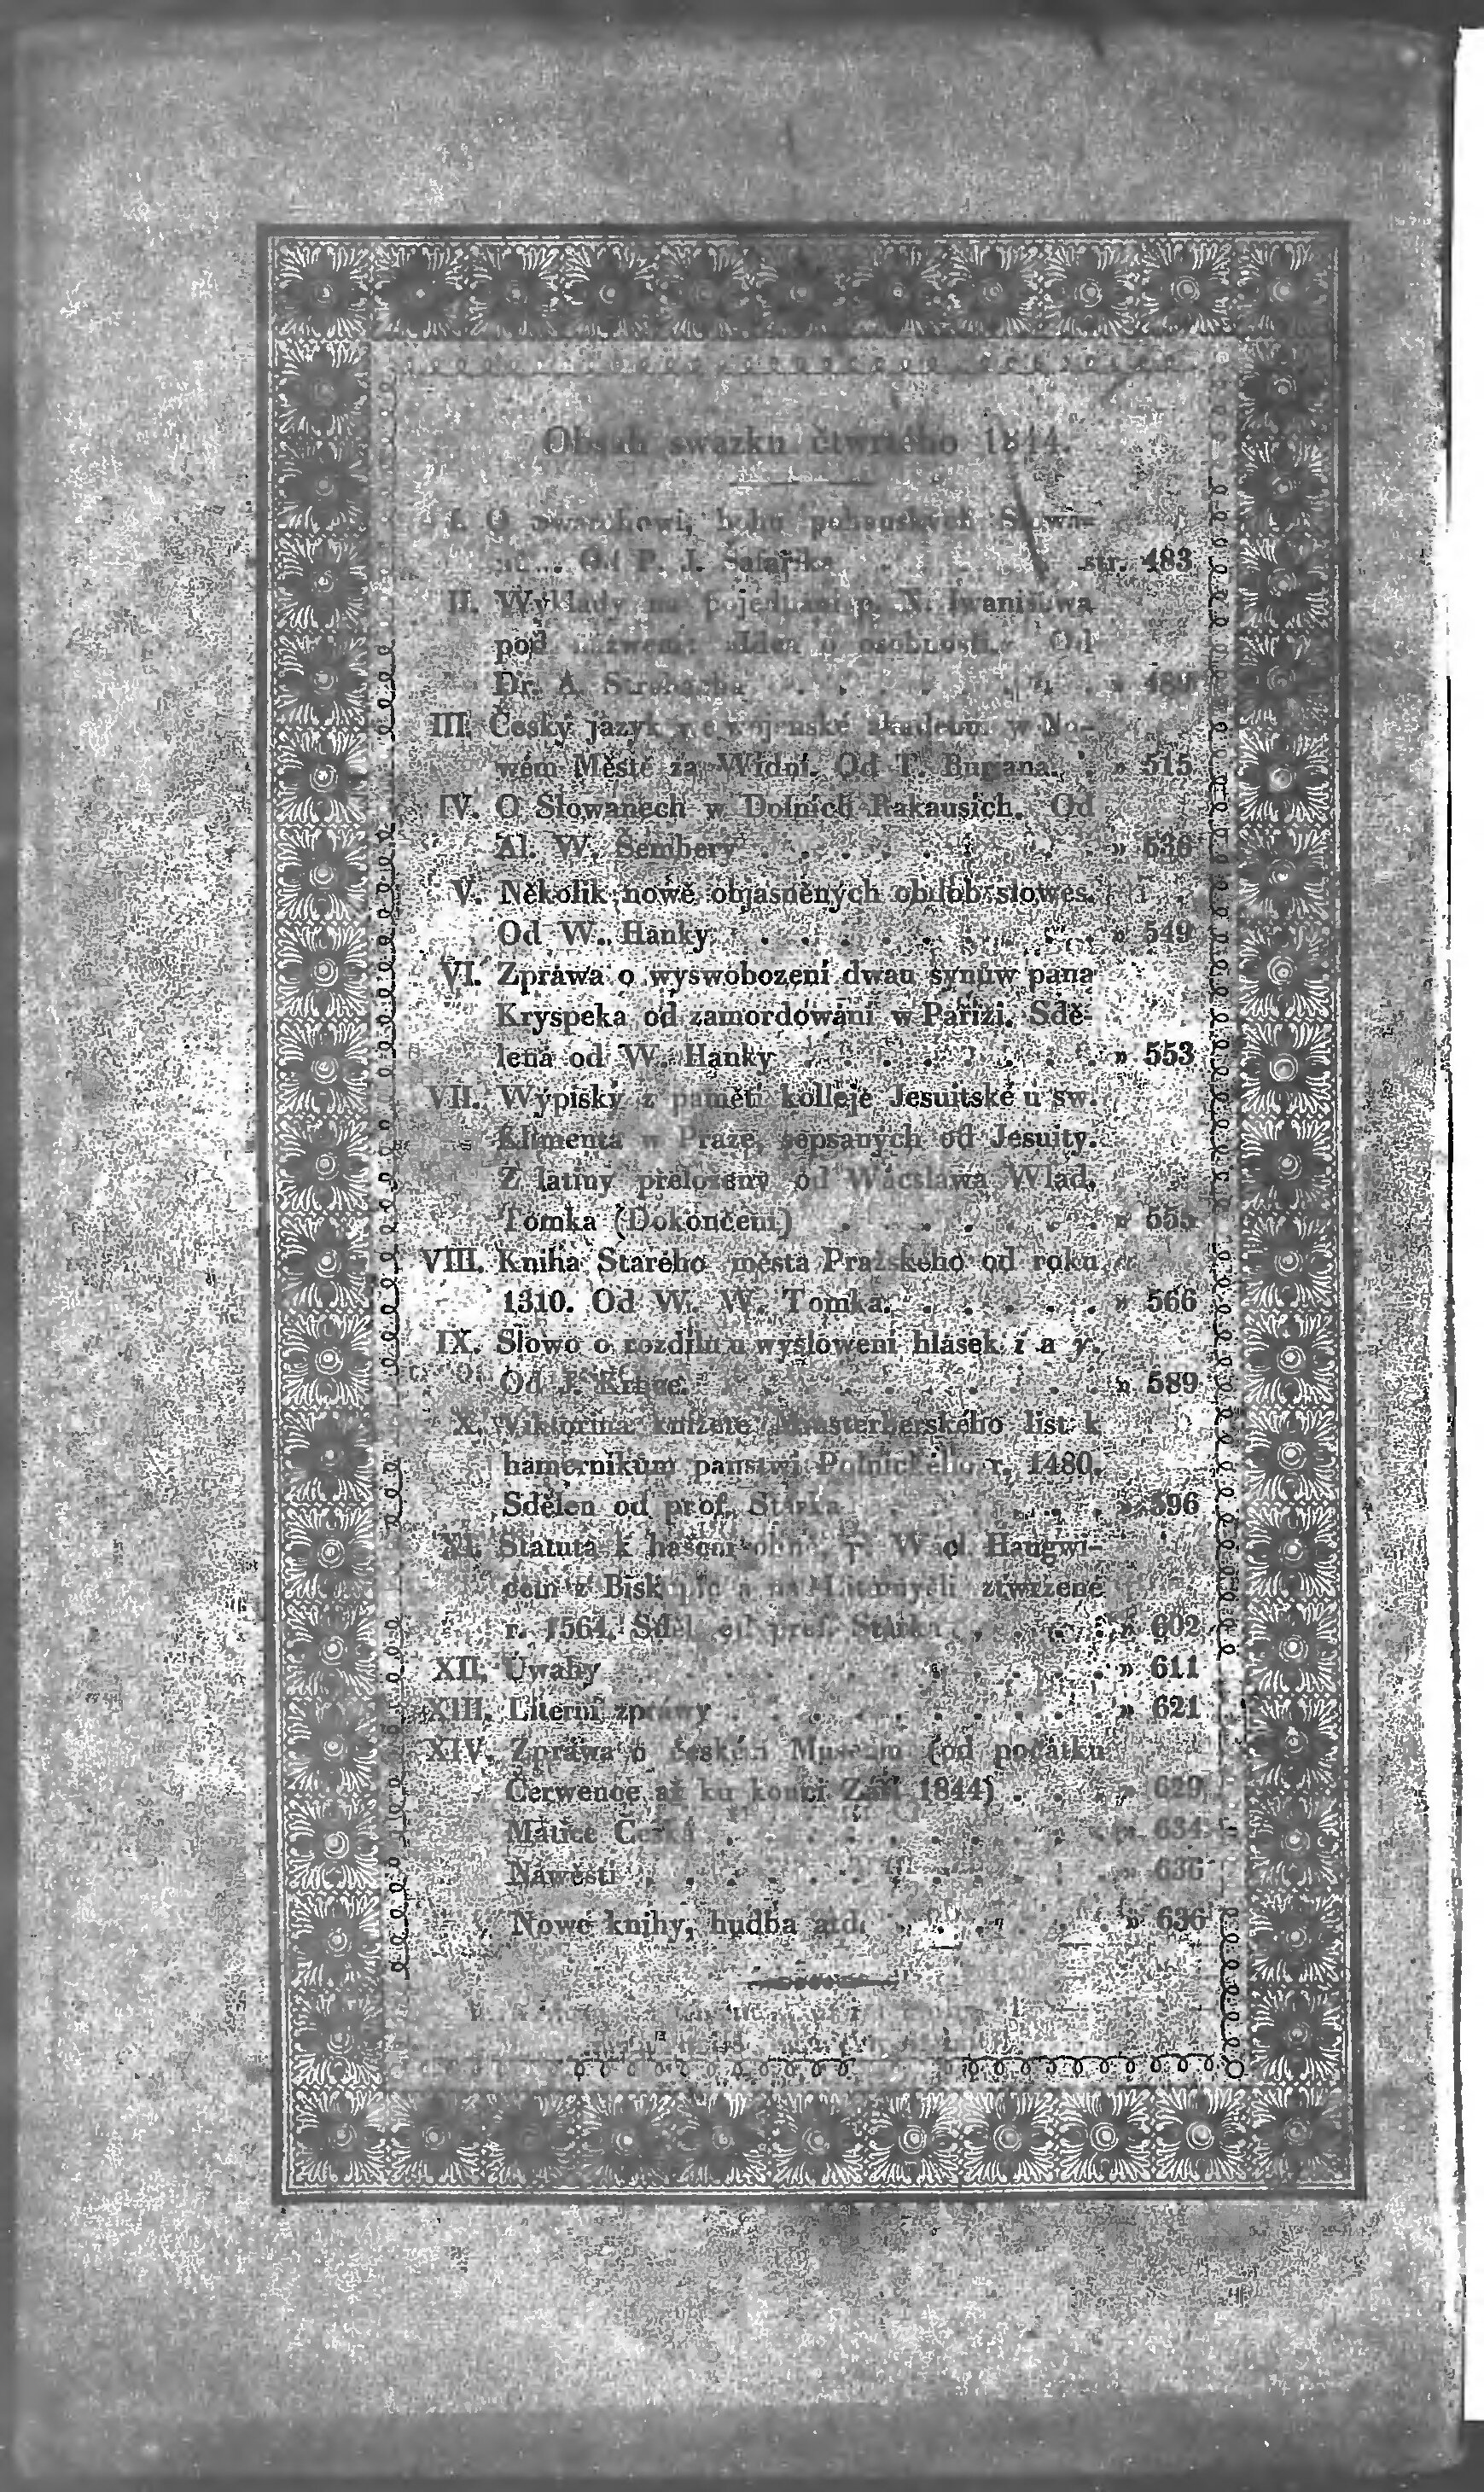 Obsah swazku čtwrtého 1844.
I. O Swarohowi, bohu pohanských Slowa-
nů. Od P. J. Šafaříka . . . str. 483
II. Wýklady na pojednání p. N. Iwanišewa
pod názwem: Idea o osobnosti. Od
Dr. A. Strobacha . . . » 489
III. Český jazyk we wojenské akademii w No-
wém Městě za Wídní. Od T. Buriana. . » 515
IV. O Slowanech w Dolních Rakausích. Od
Al. W. Šembery . . . . » 536
V. Několik nowě objasněných obilob slowes.
Od W. Hanky . . . . . » 549
VI. Zpráwa o wyswobození dwau synůw pana
Kryspeka od zamordowání w Paříži. Sdě-
lená od W. Hanky . . . . » 553
VII. Wýpisky z pamětí kolleje Jesuitské u sw.
Klimenta w Praze, sepsaných od Jesuity.
Z latiny přeloženy od Wácslawa Wlad.
Tomka (Dokončení) . . . . » 555
VIII. Kniha Starého města Pražského od roku
1310. Od W. W. Tomka. . . . . . » 566
IX. Slowo o rozdílu u wyslowení hlásek i a y.
Od J. . . . . » 589
X. Wiktorina knížete Minsterberského list k
hamerníkům panstwí Polnického r. 1480.
Sdělen od prof. Stárka . . . . » 596
XI. Statuta k Haugwi-
cem z Biskupic a na Litomyšli ztwrzené
r. 1564. Sděl. od prof. Stárka . . . » 602
XII. Úwahy . . . . . » 611
XIII. Literní zpráwy . . . . . » 621
XIV. Zpráwa o českém Museum (od počátku
Čerwence až ku konci Září 1844) . . . » 629
Matice Česká . . . . . » 634
Náwěští . . . . . » 636
Nowé knihy, hudba atd. . . . . » 636